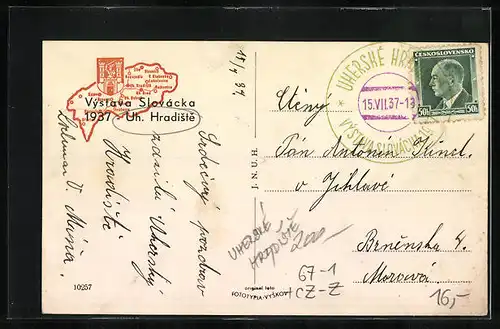 Výstava Slovácka
1937 - Uh. Hradiště
15/7 37
Srdečný pozdrav
zasílá Uherský
Hradiště
UHERSKÉ HRA
15.VII.37-13
VÝSTAVA SLOVÁCKA
ČESKOSLOVENSKO
50h
50h
Pán Antonín
v Jihlavě
Brněnská 4.
Morava
J N U H
UHERSKÉ
HRADIŠTĚ
67-1
CZ-Z
16,-
10257
original foto
FOTOTYPIA-VYŠKOV